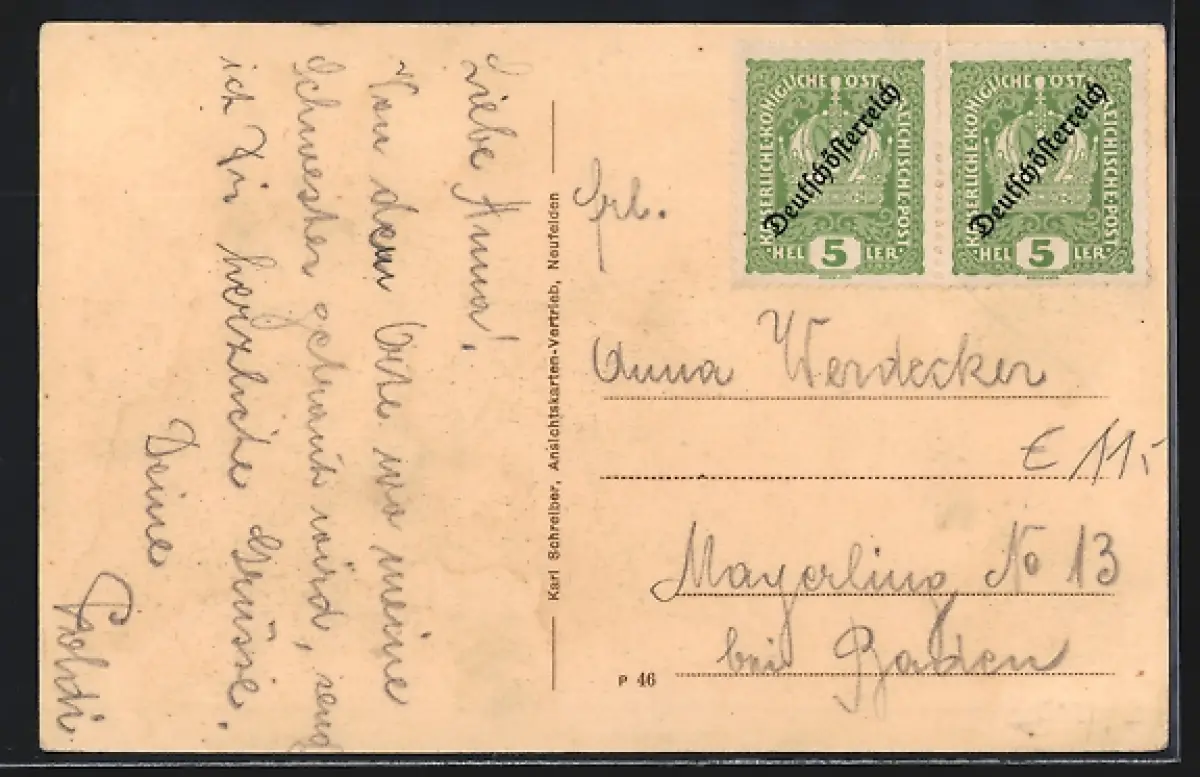 Liebe Anna!
Von dem Orte wo meine
Schwester getraut wird, send
ich Dir herzliche Grüsse.
Deine
Karl Schreiber, Ansichtskarten-Vertrieb, Neufelden
KAISERLICHE KÖNIGLICHE ÖSTERREICHISCHE POST
Deutschösterreich
HELLER 5
KAISERLICHE KÖNIGLICHE ÖSTERREICHISCHE POST
Deutschösterreich
HELLER 5
Frl.
Anna Werdecker
€ 11,-
Mayerling No 13
bei Baden
P 46